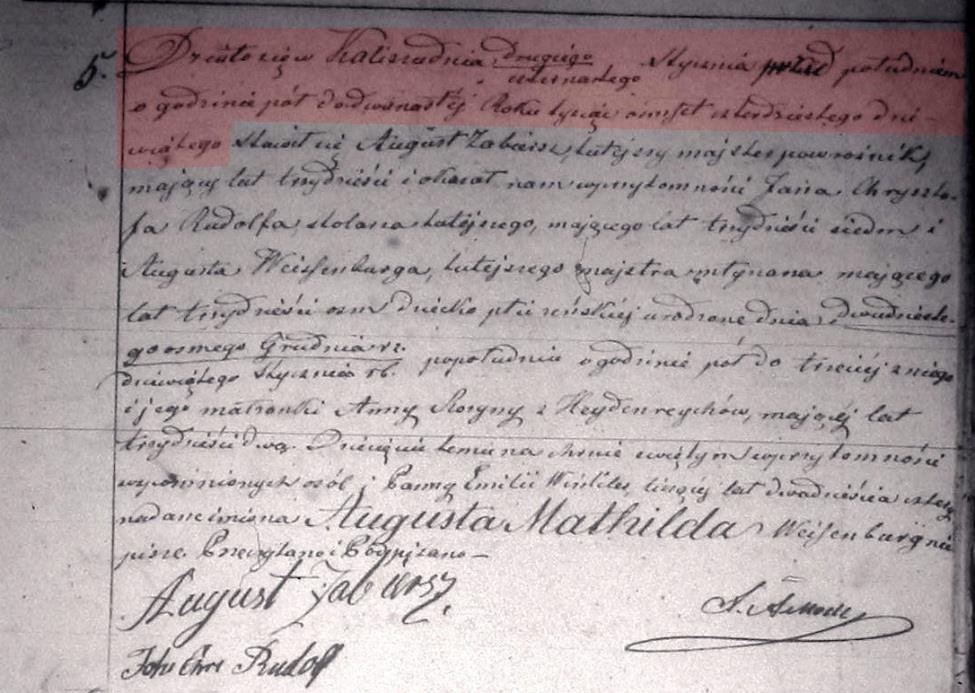 5. Działo się w Kaliszu dnia Drugiego / czternastego Stycznia przed południem
o godzinie pół do dwunastej Roku tysiąc ośmset czterdziestego dzie-
wiątego stawił się August Zabiersz, tutejszy majster powroźnik,
mający lat trzydzieści i okazał nam w przytomności Jana Chryszto-
fa Rudolfa stolarza tutejszego, mającego lat trzydzieści siedm i
Augusta Weissenburga, tutejszego majstra młynarza mającego
lat trzydzieści osm dziecko płci żeńskiej urodzone dnia dwudzieste-
go osmego Grudnia r.z.
dziewiątego Stycznia rb. popołudniu o godzinie pół do trzeciej z niego
i jego małżonki Anny Rozyny z Heydenreychów, mającej lat
trzydzieści dwa. Dziecięciu temu na chrzcie świętym w przytomności
wspomnionych osób i Panny Emilii liczącej lat dwadzieścia cztery
nadano imiona Augusta Mathilda Weissenburg nie
pisze. Przeczytano i Podpisano –
August Zabiersz
Joh Chr Rudolf